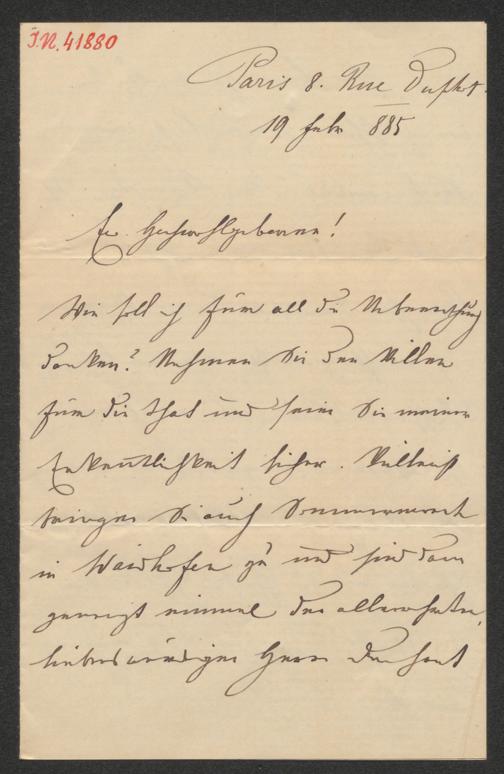 J.N. 41880
Paris 8. Rue
19 Febr 885
Ew. Hochwohlgeboren!
Wie soll ich für all die Ueberraschung
danken? Nehmen Sie den Willen
für die That und seien Sie meiner
Erkenntlichkeit sicher. Vielleicht
bringen Sie auch
in Waidhofen zu und sind dann
geneigt einmal den allverehrten,
liebenswürdigen Herrn